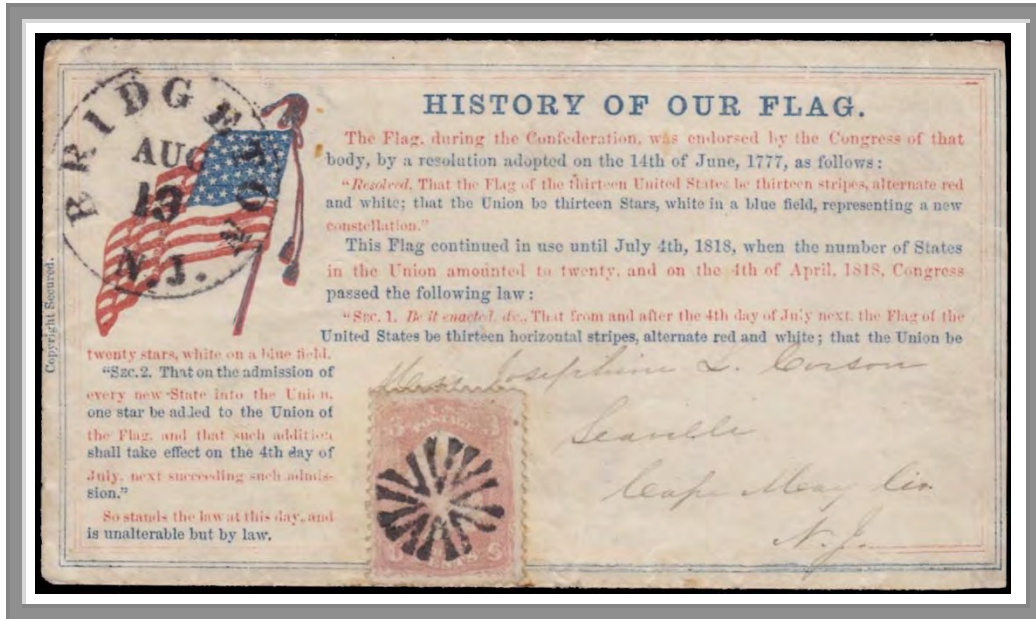 BRIDGETON
AUG
19
N.J.
HISTORY OF OUR FLAG.
The Flag, during the Confederation, was endorsed by the Congress of that
body, by a resolution adopted on the 14th of June, 1777, as follows:
"Resolved, That the Flag of the thirteen United States be thirteen stripes, alternate red
and white; that the Union be thirteen Stars, white in a blue field, representing a new
constellation."
This Flag continued in use until July 4th, 1818, when the number of States
in the Union amounted to twenty, and on the 4th of April, 1818, Congress
passed the following law:
"Sec. 1. Be it enacted, &c., That from and after the 4th day of July next, the Flag of the
United States be thirteen horizontal stripes, alternate red and white; that the Union be
twenty stars, white on a blue field.
"Sec. 2. That on the admission of
every new State into the Union,
one star be added to the Union of
the Flag, and that such addition
shall take effect on the 4th day of
July, next succeeding such admis-
sion."
So stands the law at this day, and
is unalterable but by law.
Copyright Secured.
Miss Josephine L. Corson
Seaville
Cape May Co.
N.J.
U.S.
POSTAGE
3 3
CENTS